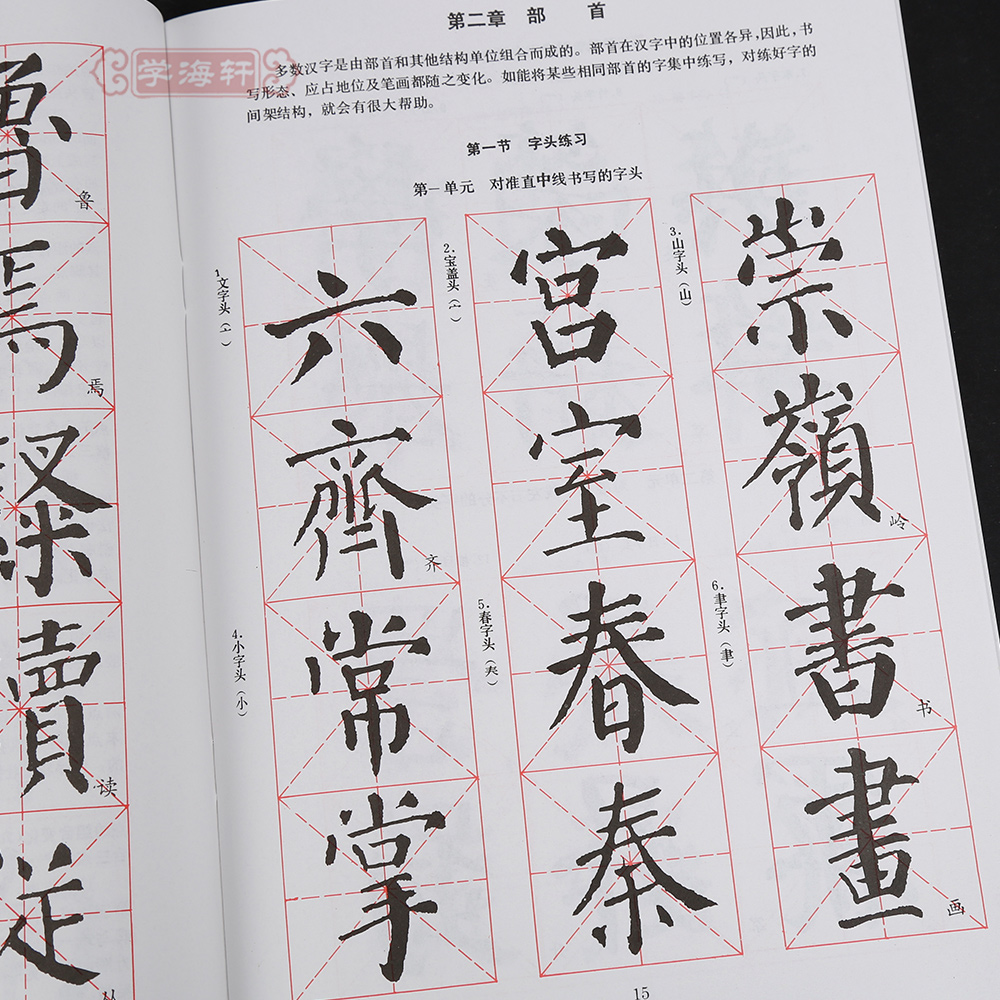 学海轩
第二章 部 首
多数汉字是由部首和其他结构单位组合而成的。部首在汉字中的位置各异,因此,书
写形态、应占地位及笔画都随之变化。如能将某些相同部首的字集中练写，对练好字的
间架结构，就会有很大帮助。
第一节 字头练习
第一单元 对准直中线书写的字头
1.文字头(亠)
六
齊
齐
2.宝盖头(宀)
宫
室
3.山字头(山)
崇
嶺
岭
4.小字头(小)
常
掌
5.春字头(𡗗)
春
秦
6.聿字头(聿)
書
书
畫
画
15
魯
鲁
焉
焉
賣
读